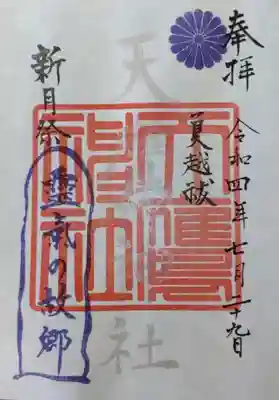 奉拝
令和四年七月二十九日
夏越祓
天
社
神社
新月祭
靈氣の故郷